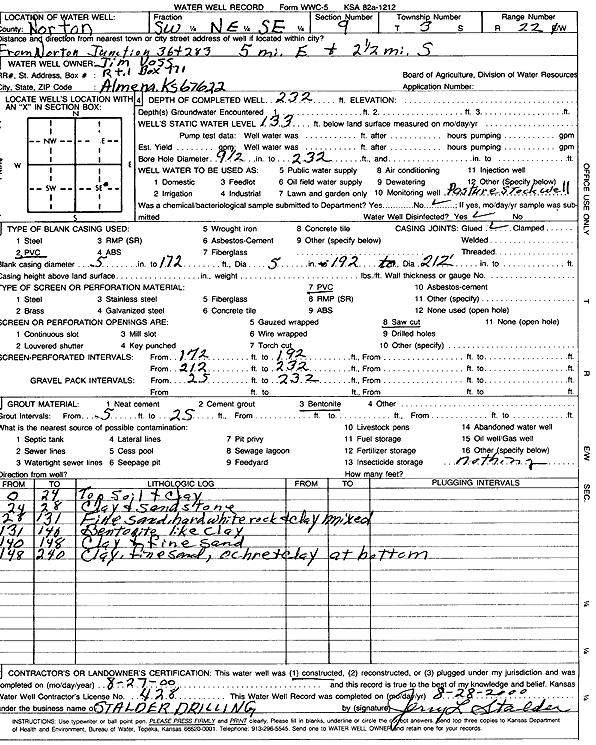 WATER WELL RECORD Form WWC-5 KSA 82a-1212
LOCATION OF WATER WELL: Fraction Section Number Township Number Range Number
County: Norton SW ¼ NE ¼ SE ¼ 9 T 3 S R 22 E/W
Distance and direction from nearest town or city street address of well if located within city?
From Norton Junction 36+283 5 mi. E + 2 1/2 mi. S
WATER WELL OWNER: Jim Voss
RR#, St. Address, Box # : Rt 1 Box 171 Board of Agriculture, Division of Water Resources
City, State, ZIP Code : Almena, Ks 67622 Application Number:
LOCATE WELL'S LOCATION WITH AN "X" IN SECTION BOX:
N
NW NE
W E
SW SE
S
4 DEPTH OF COMPLETED WELL 232 ft. ELEVATION:
Depth(s) Groundwater Encountered 1 ft. 2. ft. 3. ft.
WELL'S STATIC WATER LEVEL 133 ft. below land surface measured on mo/day/yr
Pump test data: Well water was ft. after hours pumping gpm
Est. Yield gpm: Well water was ft. after hours pumping gpm
Bore Hole Diameter 9 1/2 in. to 232 ft., and in. to ft.
WELL WATER TO BE USED AS: 5 Public water supply 8 Air conditioning 11 Injection well
1 Domestic 3 Feedlot 6 Oil field water supply 9 Dewatering 12 Other (Specify below)
2 Irrigation 4 Industrial 7 Lawn and garden only 10 Monitoring well Pasture Stock well
Was a chemical/bacteriological sample submitted to Department? Yes No ✓ ; If yes, mo/day/yr sample was sub-
mitted Water Well Disinfected? Yes ✓ No
TYPE OF BLANK CASING USED: 5 Wrought iron 8 Concrete tile CASING JOINTS: Glued ✓ Clamped
1 Steel 3 RMP (SR) 6 Asbestos-Cement 9 Other (specify below) Welded
2 PVC 4 ABS 7 Fiberglass Threaded
Blank casing diameter 5 in. to 172 ft., Dia 5 in. to 192 to Dia 212'
Casing height above land surface in., weight lbs./ft. Wall thickness or gauge No.
TYPE OF SCREEN OR PERFORATION MATERIAL: 7 PVC 10 Asbestos-cement
1 Steel 3 Stainless steel 5 Fiberglass 8 RMP (SR) 11 Other (specify)
2 Brass 4 Galvanized steel 6 Concrete tile 9 ABS 12 None used (open hole)
SCREEN OR PERFORATION OPENINGS ARE: 5 Gauzed wrapped 8 Saw cut 11 None (open hole)
1 Continuous slot 3 Mill slot 6 Wire wrapped 9 Drilled holes
2 Louvered shutter 4 Key punched 7 Torch cut 10 Other (specify)
SCREEN-PERFORATED INTERVALS: From 172 ft. to 192 ft., From ft. to ft.
From 212 ft. to 232 ft., From ft. to ft.
GRAVEL PACK INTERVALS: From 25 ft. to 232 ft., From ft. to ft.
From ft. to ft., From ft. to ft.
GROUT MATERIAL: 1 Neat cement 2 Cement grout 3 Bentonite 4 Other
Grout Intervals: From 5 ft. to 25 ft., From ft. to ft., From ft. to ft.
What is the nearest source of possible contamination: 10 Livestock pens 14 Abandoned water well
1 Septic tank 4 Lateral lines 7 Pit privy 11 Fuel storage 15 Oil well/Gas well
2 Sewer lines 5 Cess pool 8 Sewage lagoon 12 Fertilizer storage 16 Other (specify below)
3 Watertight sewer lines 6 Seepage pit 9 Feedyard 13 Insecticide storage nothing
Direction from well? How many feet?
FROM TO LITHOLOGIC LOG FROM TO PLUGGING INTERVALS
0 24 Top Soil + Clay
24 28 Clay + Sandstone
28 131 Fine sand, hard white rock + clay mixed
131 140 Bentonite like Clay
140 148 Clay + fine sand
148 240 Clay, fine sand, ochre + clay at bottom
CONTRACTOR'S OR LANDOWNER'S CERTIFICATION: This water well was (1) constructed, (2) reconstructed, or (3) plugged under my jurisdiction and was
completed on (mo/day/year) 8-27-00 and this record is true to the best of my knowledge and belief. Kansas
Water Well Contractor's License No. 428 This Water Well Record was completed on (mo/day/yr) 8-28-2000
under the business name of STALDER DRILLING by (signature) Jerry L Stalder
INSTRUCTIONS: Use typewriter or ball point pen. PLEASE PRESS FIRMLY and PRINT clearly. Please fill in blanks, underline or circle the correct answers. Send top three copies to Kansas Department
of Health and Environment, Bureau of Water, Topeka, Kansas 66620-0001. Telephone: 913-296-5545. Send one to WATER WELL OWNER and retain one for your records.
OFFICE USE ONLY
T
R
E/W
SEC.
¼
¼
¼